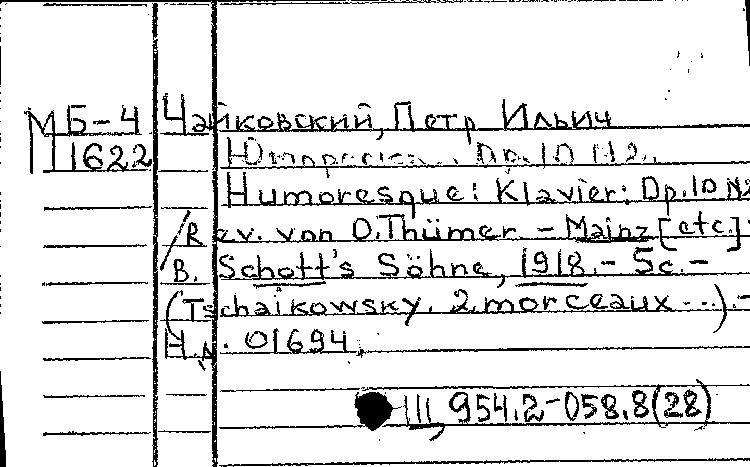 МБ-4 Чайковский, Петр Ильич
П 1622 Юмореска. Op. 10 N2.
Humoresque: Klavier: Op. 10 N2
/Rev. von O. Thümer. - Mainz [etc.]:
B. Schott's Söhne, 1918. - 5c. -
(Tschaikowsky. 2. morceaux ...). -
Н.д. 01694.
III, 954.2-058.8(28)